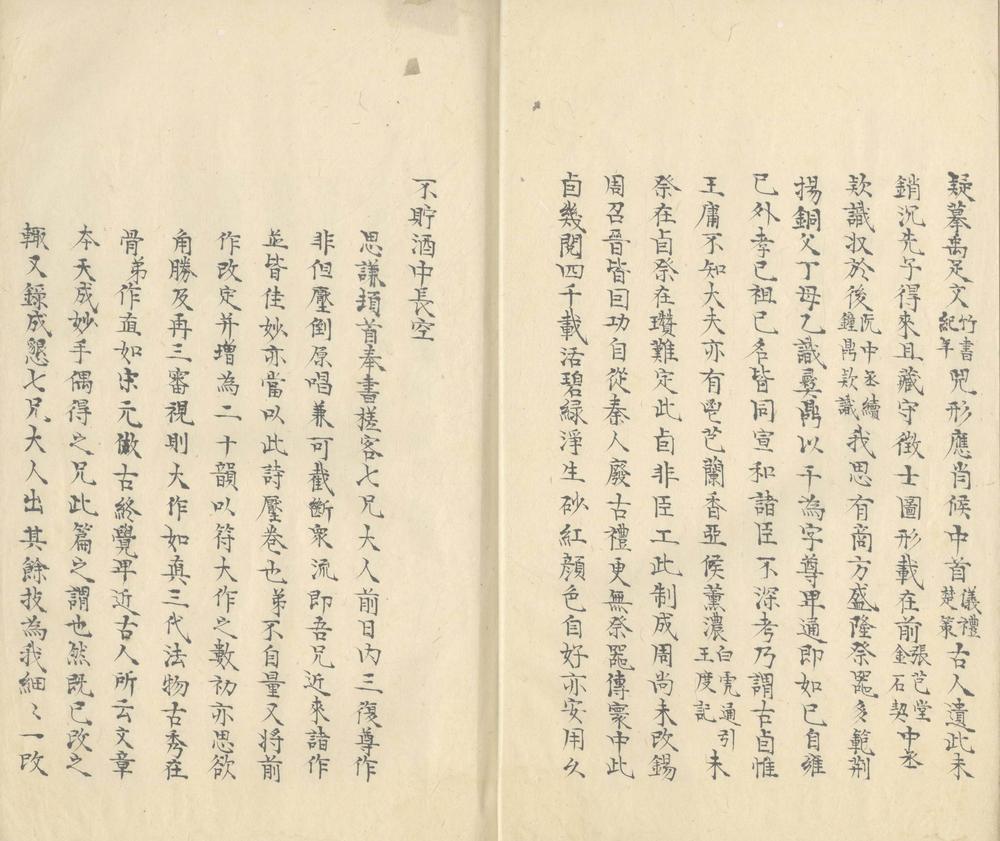 疑摹禹足文竹書紀年兕形應肖候中首儀禮楚策古人遺此未
銷沉先子得來且藏守徵士圖形載在前張芑堂金石契中丞
款識収於後阮中丞續鐘鼎款識我思有商方盛隆祭器多範荆
揚銅父丁母乙識彝鼎以干為字尊卑通即如己自雍
己外孝己祖己名皆同宣和諸臣不深考乃謂古卣惟
王庸不知大夫亦有鬯芑蘭香亞侯薰濃白虎通引王度記未
祭在卣祭在瓚難定此卣非臣工此制成周尚未改錫
周召晉皆曰功自從秦人廢古禮更無祭器傳寰中此
卣幾閱四千載活碧綠淨生砂紅顔色自好亦安用久
不貯酒中長空
思謙頊首奉書搓客七兄大人前日内三復尊作
非但壓倒原唱兼可截斷衆流即吾兄近來諸作
並皆佳妙亦當以此詩壓卷也弟不自量又將前
作改定并增為二十韻以符大作之數初亦思欲
角勝及再三審視則大作如真三代法物古秀在
骨弟作直如宋元倣古終覺卑近古人所云文章
本天成妙手偶得之兄此篇之謂也然既已改之
輙又錄成懇七兄大人出其餘技為我細〻一改